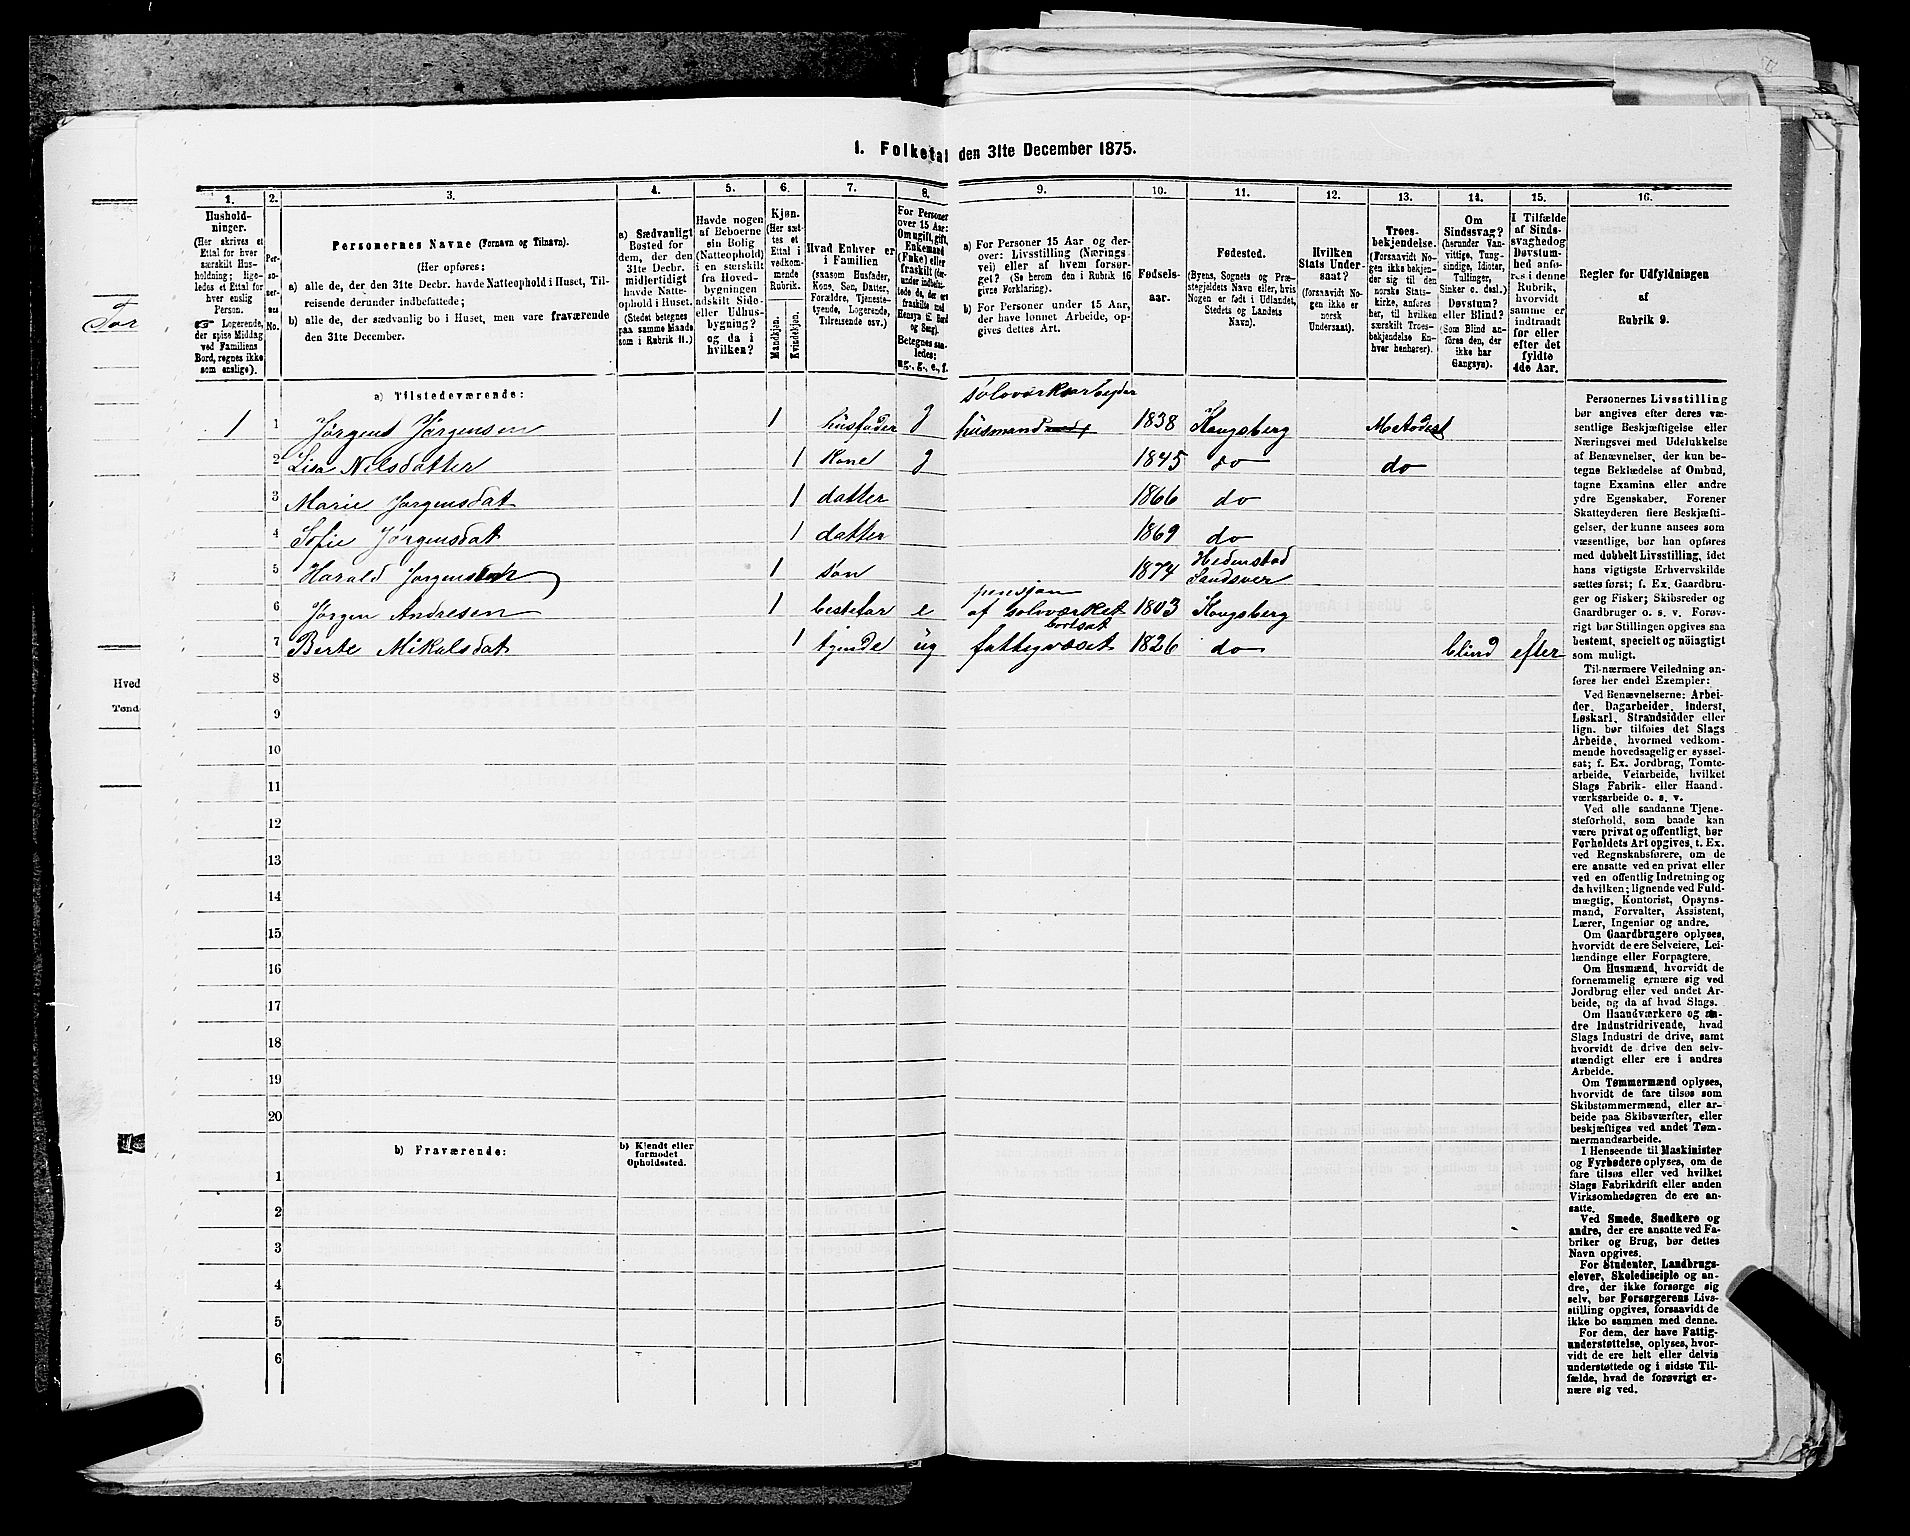 I. Folketal den 31te December 1875.
1. 2. 3. 4. 5. 6. 7. 8. 9. 10. 11. 12. 13. 14. 15. 16.
Hushold-
ninger.
(Her skrives et
Ettal for hver
særskilt Hus-
holdning; lige-
ledes et Ettal for
hver enslig
Person.
☞ Logerende,
der spise Middag
ved Familiens
Bord, regnes ikke
som enslige).
Per-
so-
ner-
nes
No.
Personernes Navne (Fornavn og Tilnavn).
(Her opføres:
a) alle de, der den 31te Decbr. havde Natteophold i Huset, Til-
reisende derunder indbefattede;
b) alle de, der sædvanlig bo i Huset, men vare fraværende
den 31te December.
a) Sædvanligt
Bosted for
dem, der den
31te Decbr.
midlertidigt
havde Natte-
ophold i Huset.
(Stedet betegnes
paa samme Maade
som i Rubrik 11.)
Havde nogen
af Beboerne
sin Bolig
(Natteophold)
i en særskilt
fra Hoved-
bygningen
adskilt Side-
eller Udhus-
bygning?
og da i
hvilken?
Kjøn.
(Her sæt-
tes et
Ettal i
vedkom-
mende
Rubrik.
Mandkjøn.
Kvindekjøn.
Hvad Enhver er
i Familien
(saasom Husfader,
Kone, Søn, Datter,
Forældre, Tjeneste-
tyende, Logerende,
Tilreisende osv.)
For Personer
over 15 Aar:
Om ugift, gift,
Enkemand
(Enke) eller
fraskilt
Betegnes saa-
ledes:
ug., g., e., f.
a) For Personer 15 Aar og der-
over: Livsstilling (Nærings-
vei) eller af hvem forsør-
get? (Se herom den i Rubrik 16
givne Forklaring).
b) For Personer under 15 Aar,
der have lønnet Arbeide, op-
gives dettes Art.
Fødsels-
aar.
Fødested.
(Byens, Sognets og Præ-
stegjeldets Navn eller, hvis
Nogen er født i Udlandet,
Stedets og Landets
Navn).
Hvilken
Stats Under-
saat?
(forsaavidt No-
gen ikke er
norsk
Undersaat).
Troes-
bekjendelse.
(Forsaavidt No-
gen ikke bekjen-
der sig til den
norske Stats-
kirke, anføres
her, til hvilken
særskilt Troes-
bekjendelse En-
hver henhører).
Om
Sindssvag?
(herunder Van-
vittige, Tung-
sindige, Idioter,
Tullinger,
Sinker o. desl.)
Døvstum?
eller Blind?
(Som Blind an-
føres den, der
ikke har
Gangsyn).
I Tilfælde
af Sinds-
svaghed og
Døvstum-
hed anfø-
res i denne
Rubrik,
hvorvidt
samme er
indtraadt
før eller
efter det
fyldte
4de Aar.
Regler for Udfyldningen
af
Rubrik 9.
a) Tilstedeværende:
sölvverksarbeyder
1 1 Jörgens Jörgensen 1 husfader g husmand 1838 Kongsberg Metodest
2 Lisa Nilsdatter 1 kone g 1845 do do
3 Marie Jorgensdat 1 datter 1866 do
4 Sofie Jörgensdat 1 datter 1869 do
5 Harald Jorgensen 1 sön 1874 Hedenstad Sandsver
6 Jørgen Andresen 1 bestefar e pensjon af sölvverket 1803 Kongsberg
7 Berte Mikalsdat 1 tyende ug fattigvæset bortsat 1826 do blind efter
8
9
10
11
12
13
14
15
16
17
18
19
20
b) Fraværende:
b) Kjendt eller
formodet
Opholdssted.
1
2
3
4
5
6
Personernes Livsstilling
bør angives efter deres væ-
sentlige Beskjæftigelse eller
Næringsvei med Udelukkelse
af Benævnelser, der kun be-
tegne Beklædelse af Ombud,
tagne Examina eller andre
ydre Egenskaber. Forener
Skatteyderen flere Beskjæfti-
gelser, der kunne ansees som
væsentlige, bør han opføres
med dobbelt Livsstilling, idet
hans vigtigste Erhvervskilde
sættes først; f. Ex. Gaardbru-
ger og Fisker; Skibsreder og
Gaardbruger o. s. v. Forøv-
rigt bør Stillingen opgives saa
bestemt, specielt og nøiagtigt
som muligt.
Til nærmere Veiledning an-
føres her endel Exempler:
Ved Benævnelserne: Arbei-
der, Dagarbeider, Inderst,
Løskarl, Strandsidder eller
lign. bør tilføies det Slags
Arbeide, hvormed vedkom-
mende hovedsagelig er syssel-
sat; f. Ex. Jordbrug, Tomte-
arbeide, Veiarbeide, hvilket
Slags Fabrik- eller Haand-
værksarbeide o. s. v.
Ved alle saadanne Tjene-
steforhold, som baade kan
være privat og offentligt, bør
Forholdets Art opgives, t. Ex.
ved Regnskabsførere, om de
ere ansatte ved en privat eller
ved en offentlig Indretning og
da hvilken; lignende ved Fuld-
mægtig, Kontorist, Opsyns-
mand, Forvalter, Assistent,
Lærer, Ingeniør og andre.
Om Gaardbrugere oplyses,
hvorvidt de ere Selveiere, Lei-
lændinge eller Forpagtere.
Om Husmænd, hvorvidt de
fornemmelig ernære sig ved
Jordbrug eller ved andet Ar-
beide, og da af hvad Slags.
Om Haandværkere og an-
dre Industridrivende, hvad
Slags Industri de drive, samt
hvorvidt de drive den selv-
stændigt eller ere i andres
Arbeide.
Om Tømmermænd oplyses,
hvorvidt de fare tilsøs som
Skibstømmermænd, eller ar-
beide paa Skibsværfter, eller
beskjæftiges ved andet Tøm-
mermandsarbeide.
I Henseende til Maskinister
og Fyrbødere oplyses, om de
fare tilsøs eller ved hvilket
Slags Fabrikdrift eller anden
Virksomhedsgren de ere an-
satte.
Ved Smede, Snedkere og
andre, der ere ansatte ved Fa-
briker og Brug, bør dettes
Navn opgives.
For Studenter, Landbrugs-
elever, Skoledisciple og an-
dre, der ikke forsørge sig
selv, bør Forsørgerens Livs-
stilling opgives, forsaavidt de
ikke bo sammen med denne.
For dem, der have Fattig-
understøttelse, oplyses, hvor-
vidt de ere helt eller delvis
understøttede og i sidste Til-
fælde, hvad de forøvrigt er-
nære sig ved.
Hved